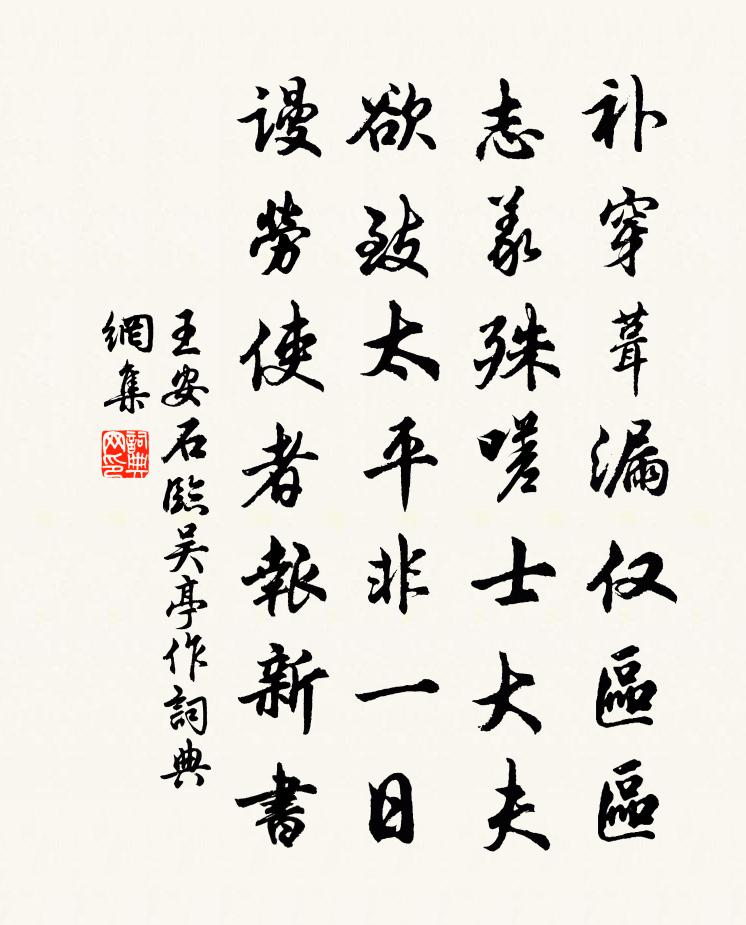 补穿葺漏仅區區
志義殊嗟士大夫
欲致太平非一日
谩勞使者報新書
王安石臨吴亭作詞典
網集
詞典網印